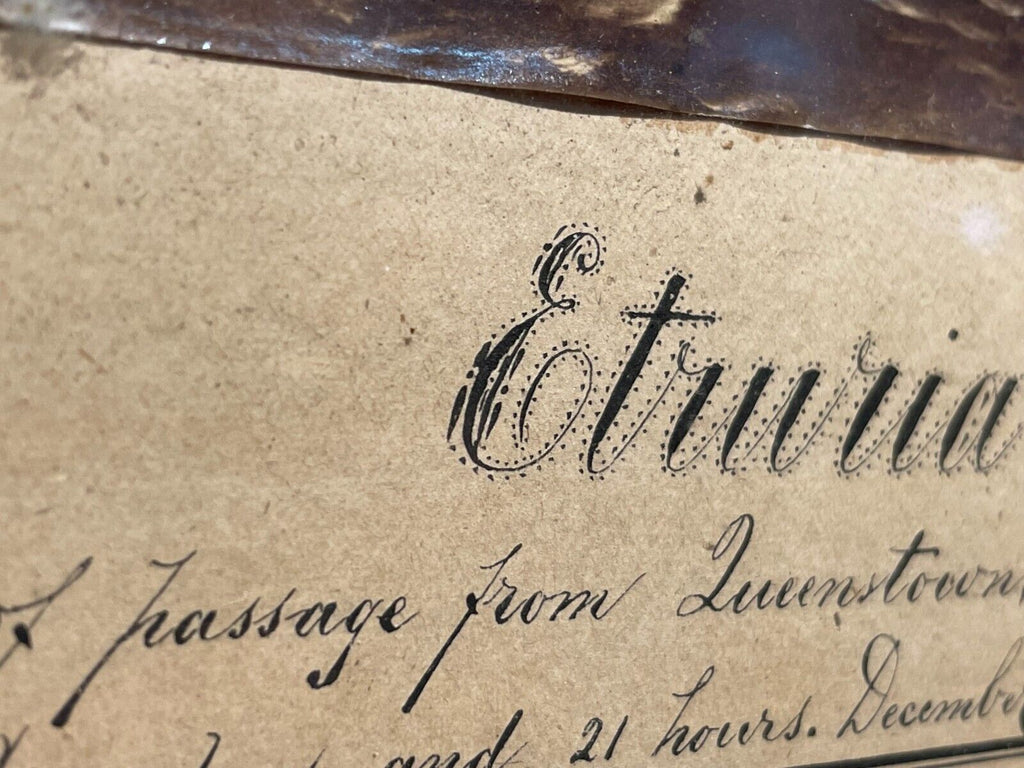 Etruria
of passage from Queenstown,
and 21 hours. December